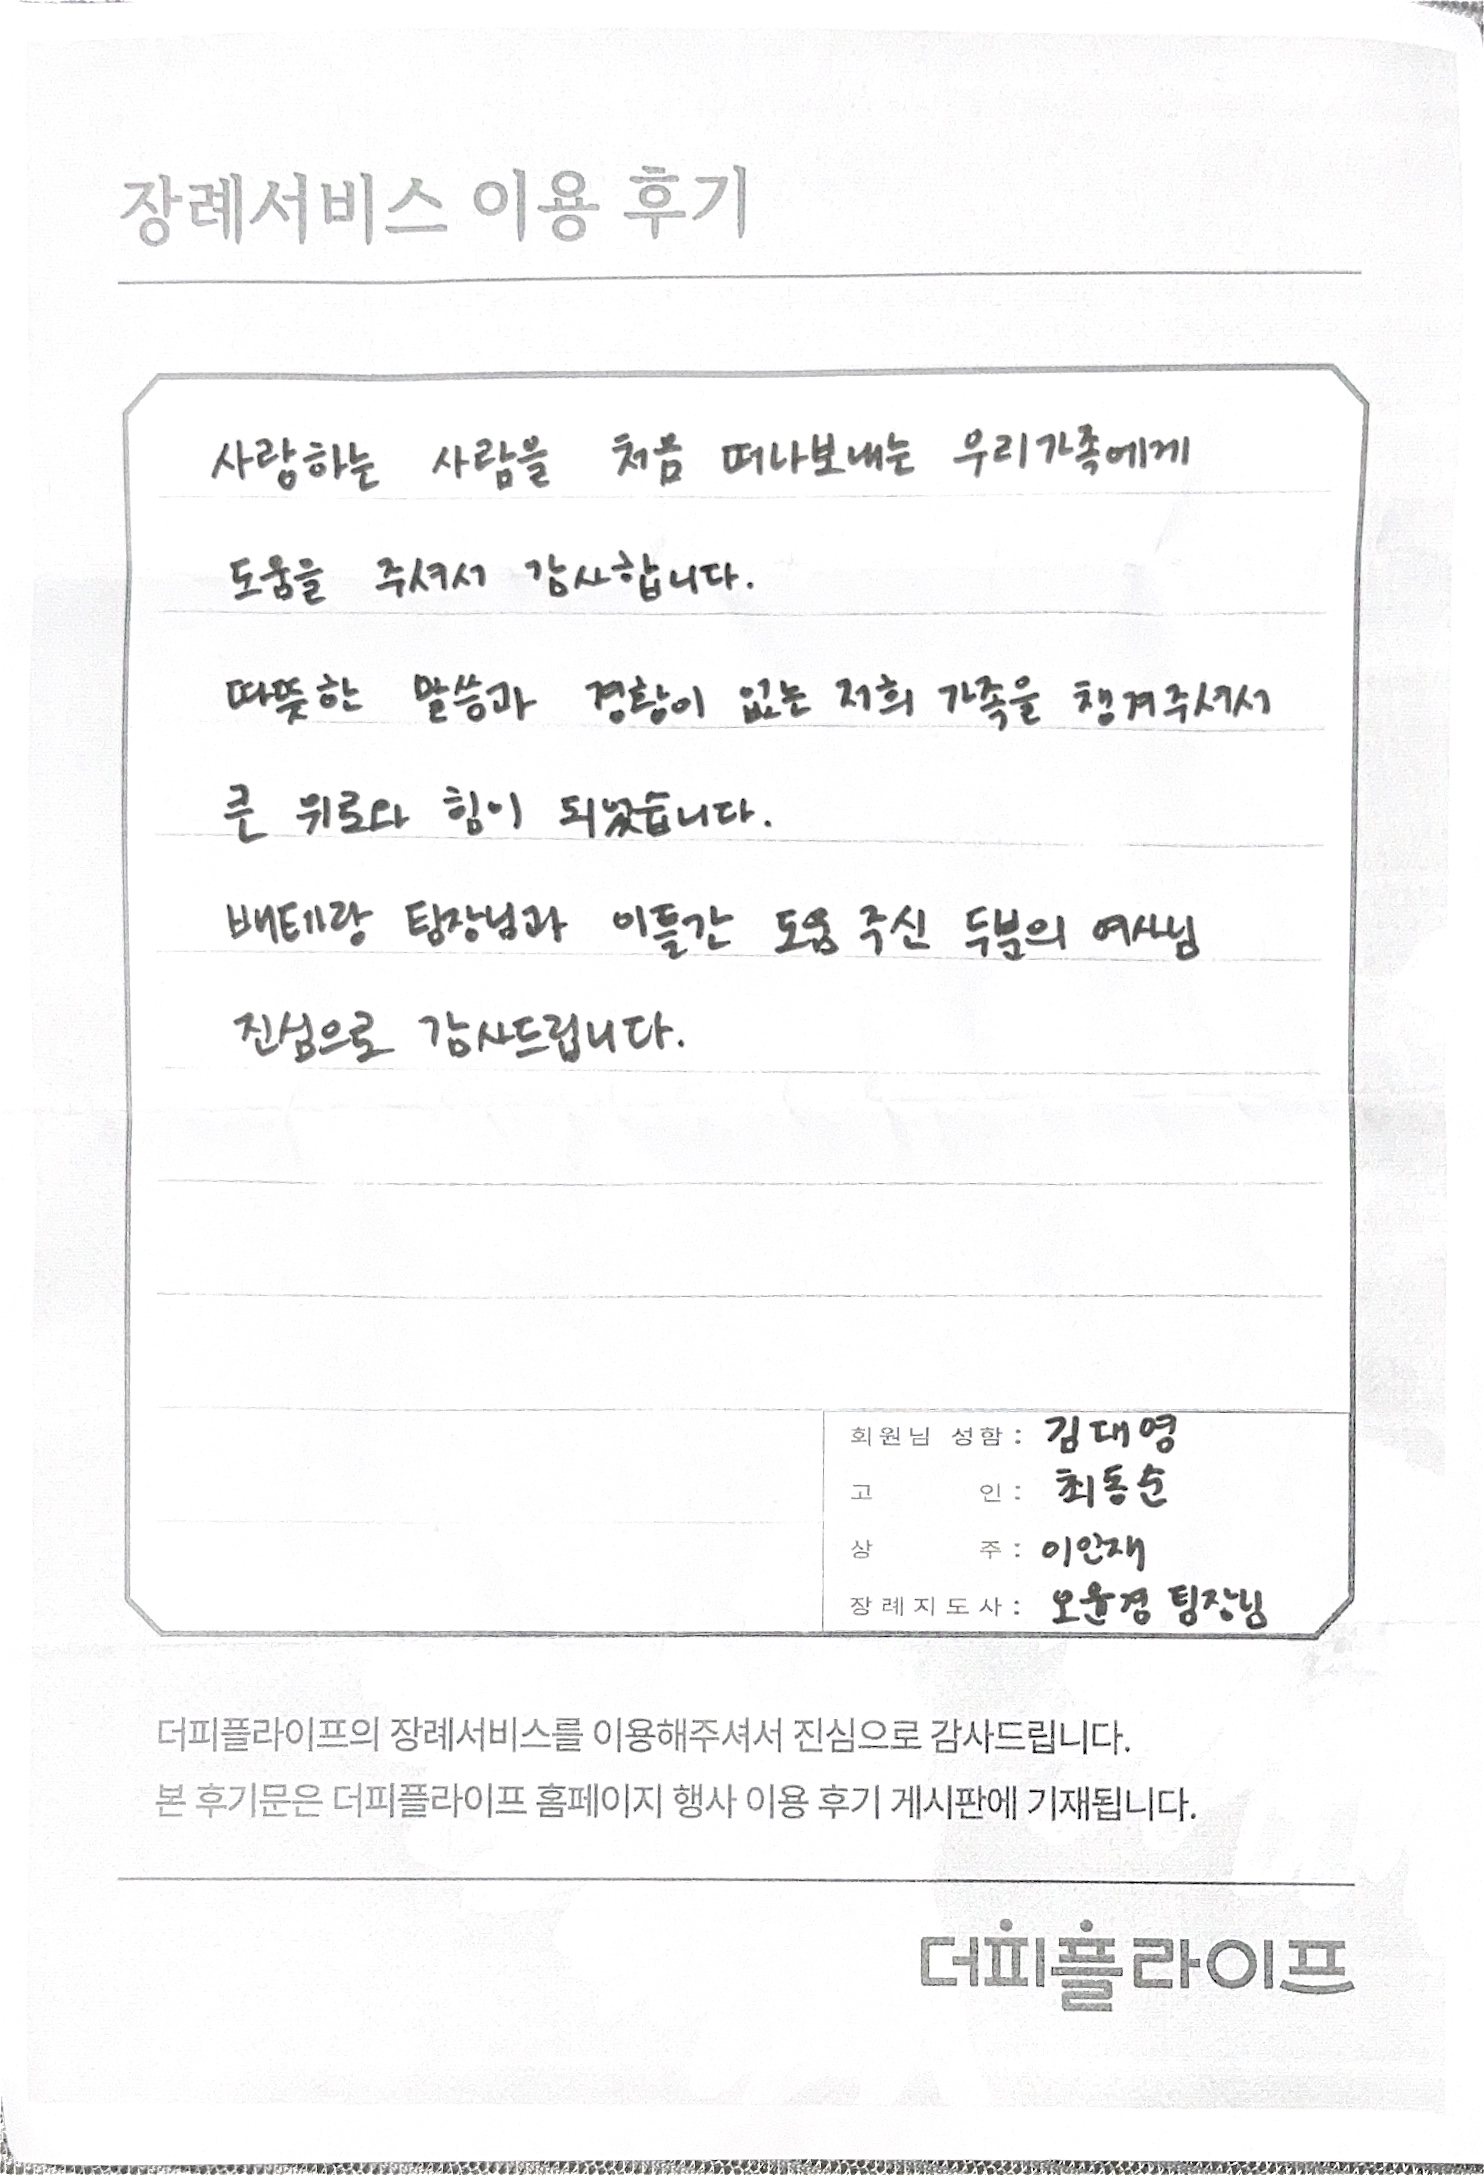 장례서비스 이용 후기
사랑하는 사람을 처음 떠나보내는 우리가족에게
도움을 주셔서 감사합니다.
따뜻한 말씀과 경황이 없는 저희 가족을 챙겨주셔서
큰 위로와 힘이 되었습니다.
배테랑 팀장님과 이틀간 도움 주신 두분의 여사님
진심으로 감사드립니다.
회원님 성함 : 김대영
고 인 : 최동순
상 주 : 이안재
장례지도사 : 오윤경 팀장님
더피플라이프의 장례서비스를 이용해주셔서 진심으로 감사드립니다.
본 후기문은 더피플라이프 홈페이지 행사 이용 후기 게시판에 기재됩니다.
더피플라이프